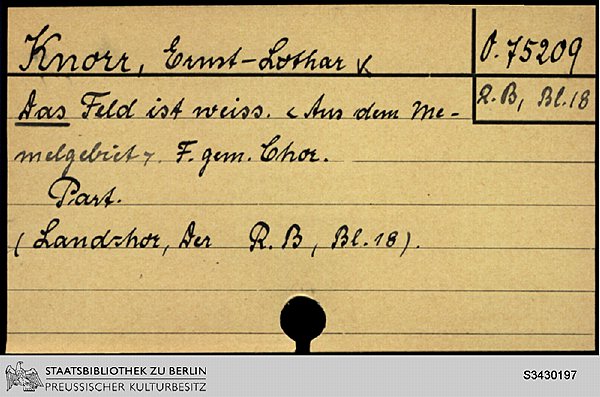 Knorr, Ernst-Lothar x
O. 75209
Das Feld ist weiss. < Aus dem Me-
R. B, Bl. 18
melgebiet >. F. gem. Chor.
Part.
(Landchor, Der R. B, Bl. 18).
STAATSBIBLIOTHEK ZU BERLIN
PREUSSISCHER KULTURBESITZ
S3430197